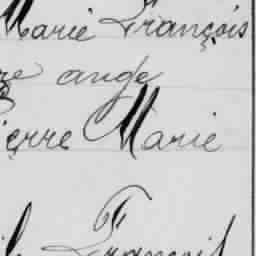 Marie François
re ange
ierre Marie
François